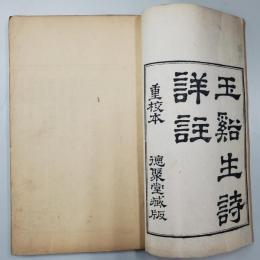 玉谿生詩
詳註
重校本
德聚堂藏版